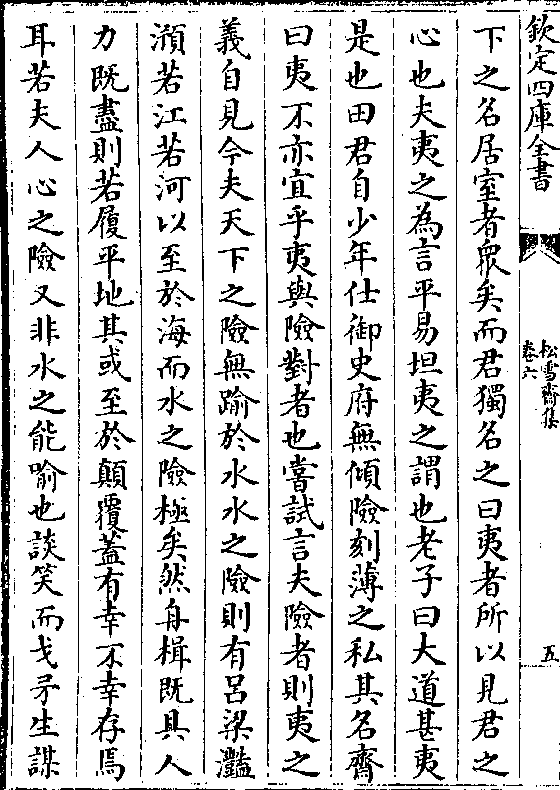 欽定四庫全書
松雪齋集
卷六
五
下之名居室者衆矣而君獨名之曰夷者所以見君之
心也夫夷之為言平易坦夷之謂也老子曰大道甚夷
是也田君自少年仕御史府無傾險刻薄之私其名齋
曰夷不亦宜乎夷與險對者也嘗試言夫險者則夷之
義自見今夫天下之險無踰於水水之險則有呂梁灩
澦若江若河以至於海而水之險極矣然舟楫既具人
力既盡則若履平地其或至於顛覆蓋有幸不幸存焉
耳若夫人心之險又非水之能喻也談笑而戈矛生謀